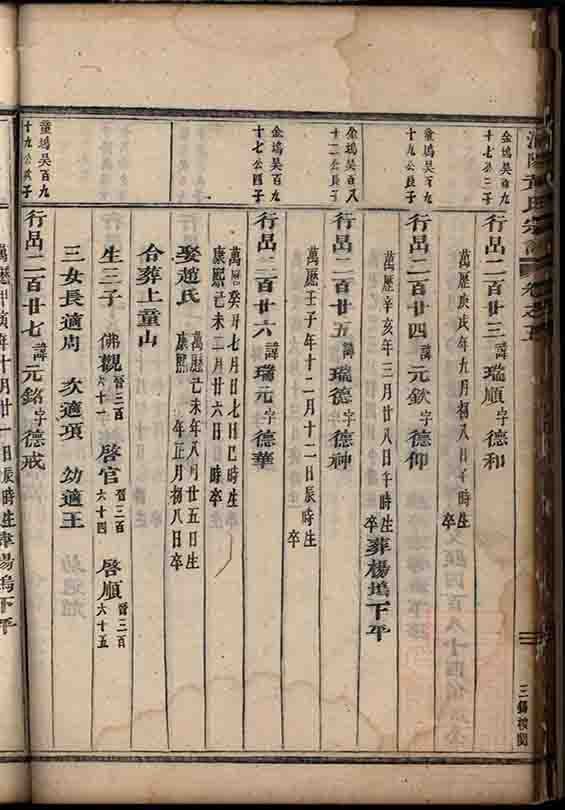 黃氏宗譜 卷之五
三錫機閣
金塢吳百九
十七公三子
行昌二百廿三 諱瑞順 字德和
萬歷庚戌年九月初八日午時生
卒
童塢吳百九
十九公長子
行昌二百廿四 諱元欽 字德仰
萬歷辛亥年三月廿八日午時生
卒
葬楊塢下平
金塢吳百八
公長子
行昌二百廿五 諱瑞德 字德神
萬歷壬子年十二月十二日辰時生
卒
金塢吳百九
十七公四子
行昌二百廿六 諱瑞元 字德華
萬曆癸丑七月日七日巳時生
康熙己未二月廿六日日時卒
娶趙氏
萬歷己未年八月廿五日生
康熙 年正月初八日卒
合葬上童山
生三子 佛觀 晉三百六十一 啓官 晉三百六十四 啓順 晉三百六十五
三女長適周 次適項 幼適王
童塢吳百九
十九公次子
行昌二百廿七 諱元銘 字德戒
萬歷甲寅年十月廿一日辰時生 葬楊塢下平